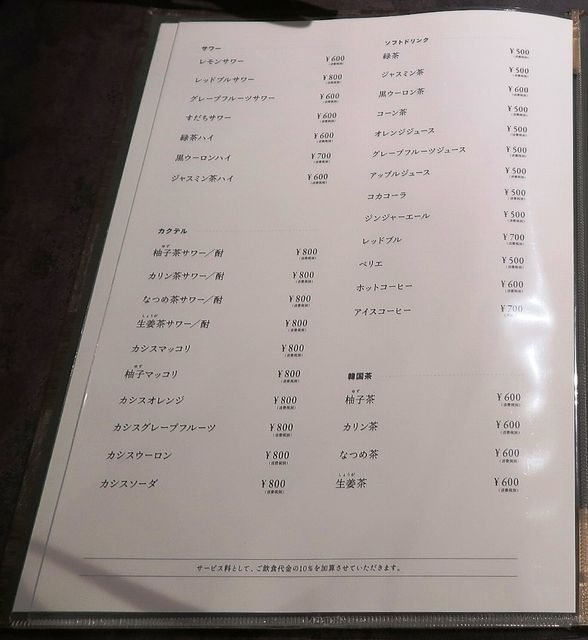 サワー
レモンサワー ¥600
(消費税別)
レッドブルサワー ¥800
(消費税別)
グレープフルーツサワー ¥600
(消費税別)
すだちサワー ¥600
(消費税別)
緑茶ハイ ¥600
(消費税別)
黒ウーロンハイ ¥700
(消費税別)
ジャスミン茶ハイ ¥600
(消費税別)
カクテル
ゆず
柚子茶サワー／酎 ¥800
(消費税別)
カリン茶サワー／酎 ¥800
(消費税別)
なつめ茶サワー／酎 ¥800
(消費税別)
しょうが
生姜茶サワー／酎 ¥800
(消費税別)
カシスマッコリ ¥800
(消費税別)
ゆず
柚子マッコリ ¥800
(消費税別)
カシスオレンジ ¥800
(消費税別)
カシスグレープフルーツ ¥800
(消費税別)
カシスウーロン ¥800
(消費税別)
カシスソーダ ¥800
(消費税別)
ソフトドリンク
緑茶 ¥500
(消費税別)
ジャスミン茶 ¥500
(消費税別)
黒ウーロン茶 ¥600
(消費税別)
コーン茶 ¥500
(消費税別)
オレンジジュース ¥500
(消費税別)
グレープフルーツジュース ¥500
(消費税別)
アップルジュース ¥500
(消費税別)
コカコーラ ¥500
(消費税別)
ジンジャーエール ¥500
(消費税別)
レッドブル ¥700
(消費税別)
ペリエ ¥500
(消費税別)
ホットコーヒー ¥600
(消費税別)
アイスコーヒー ¥700
韓国茶
ゆず
柚子茶 ¥600
(消費税別)
カリン茶 ¥600
(消費税別)
なつめ茶 ¥600
(消費税別)
しょうが
生姜茶 ¥600
(消費税別)
サービス料として、ご飲食代金の10％を加算させていただきます。